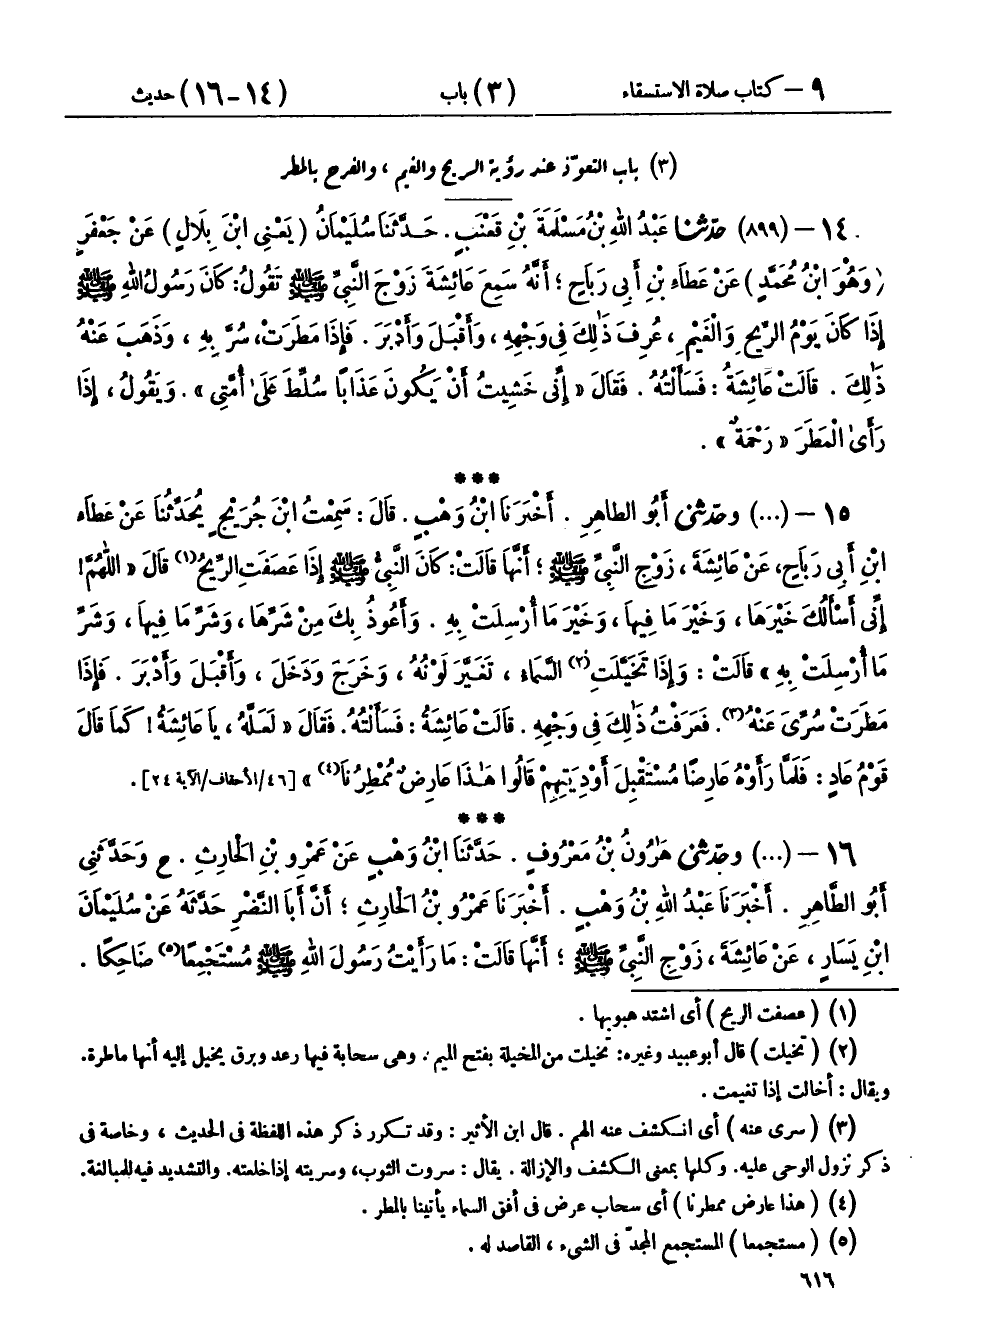 ٩ – كتاب صلاة الاستسقاء (٣) باب (١٤-١٦) حديث
(٣) باب التعوّذ عند رؤية الريح والغيم ، والفرح بالمطر
١٤ – (٨٩٩) حدّثنا عَبْدُ اللهِ بْنُ مَسْلَمَةَ بْنِ قَعْنَبٍ . حَدَّثَنَا سُلَيْمَانُ ( يَعْنِى ابْنَ بِلَالٍ ) عَنْ جَعْفَرٍ
( وَهُوَ ابْنُ مُحَمَّدٍ ) عَنْ عَطَاءِ بْنِ أَبِى رَبَاحٍ ؛ أَنَّهُ سَمِعَ عَائِشَةَ زَوْجَ النَّبِىِّ ﷺ تَقُولُ : كَانَ رَسُولُ اللهِ ﷺ
إِذَا كَانَ يَوْمُ الرِّيحِ وَالْغَيْمِ ، عُرِفَ ذَٰلِكَ فِى وَجْهِهِ ، وَأَقْبَلَ وَأَدْبَرَ . فَإِذَا مَطَرَتْ ، سُرَّ بِهِ ، وَذَهَبَ عَنْهُ
ذَٰلِكَ . قَالَتْ عَائِشَةُ : فَسَأَلْتُهُ . فَقَالَ « إِنِّى خَشِيتُ أَنْ يَكُونَ عَذَابًا سُلِّطَ عَلَىٰ أُمَّتِى » . وَيَقُولُ ، إِذَا
رَأَىٰ الْمَطَرَ « رَحْمَةٌ » .
***
١٥ – (...) وحدّثنى أَبُو الطاهِرِ . أَخْبَرَنَا ابْنُ وَهْبٍ . قَالَ : سَمِعْتُ ابْنَ جُرَيْجٍ يُحَدِّثُنَا عَنْ عَطَاءِ
ابْنِ أَبِى رَبَاحٍ ، عَنْ عَائِشَةَ ، زَوْجِ النَّبِىِّ ﷺ ؛ أَنَّهَا قَالَتْ : كَانَ النَّبِىُّ ﷺ إِذَا عَصَفَتِ الرِّيحُ(١) قَالَ « اللّٰهُمَّ !
إِنِّى أَسْأَلُكَ خَيْرَهَا ، وَخَيْرَ مَا فِيهَا ، وَخَيْرَ مَا أُرْسِلَتْ بِهِ . وَأَعُوذُ بِكَ مِنْ شَرِّهَا ، وَشَرِّ مَا فِيهَا ، وَشَرِّ
مَا أُرْسِلَتْ بِهِ » قَالَتْ : وَإِذَا تَخَيَّلَتِ(٢) السَّمَاءُ ، تَغَيَّرَ لَوْنُهُ ، وَخَرَجَ وَدَخَلَ ، وَأَقْبَلَ وَأَدْبَرَ . فَإِذَا
مَطَرَتْ سُرِّىَ عَنْهُ(٣) . فَعَرَفْتُ ذَٰلِكَ فِى وَجْهِهِ . قَالَتْ عَائِشَةُ : فَسَأَلْتُهُ . فَقَالَ « لَعَلَّهُ ، يَا عَائِشَةُ ! كَمَا قَالَ
قَوْمُ عَادٍ : فَلَمَّا رَأَوْهُ عَارِضًا مُسْتَقْبِلَ أَوْدِيَتِهِمْ قَالُوا هَٰذَا عَارِضٌ مُمْطِرُنَا(٤) » [٤٦/الأحقاف/الآية ٢٤] .
***
١٦ – (...) وحدّثنى هَارُونُ بْنُ مَعْرُوفٍ . حَدَّثَنَا ابْنُ وَهْبٍ عَنْ عَمْرِو بْنِ الْحَارِثِ . ح وَحَدَّثَنِى
أَبُو الطَّاهِرِ . أَخْبَرَنَا عَبْدُ اللهِ بْنُ وَهْبٍ . أَخْبَرَنَا عَمْرُو بْنُ الْحَارِثِ ؛ أَنَّ أَبَا النَّضْرِ حَدَّثَهُ عَنْ سُلَيْمَانَ
ابْنِ يَسَارٍ ، عَنْ عَائِشَةَ ، زَوْجِ النَّبِىِّ ﷺ ؛ أَنَّهَا قَالَتْ : مَا رَأَيْتُ رَسُولَ اللهِ ﷺ مُسْتَجْمِعًا(٥) ضَاحِكًا .
(١) ( عصفت الريح ) أى اشتد هبوبها .
(٢) ( تخيلت ) قال أبو عبيد وغيره : تخيلت من المخيلة بفتح الميم . وهى سحابة فيها رعد وبرق يخيل إليه أنها ماطرة .
ويقال : أخالت إذا تغيمت .
(٣) ( سرى عنه ) أى انكشف عنه الهم . قال ابن الأثير : وقد تكرر ذكر هذه اللفظة فى الحديث ، وخاصة فى
ذكر نزول الوحى عليه . وكلها بمعنى الكشف والإزالة . يقال : سروت الثوب ، وسريته إذا خلعته . والتشديد فيه للمبالغة .
(٤) ( هذا عارض ممطرنا ) أى سحاب عرض فى أفق السماء يأتينا بالمطر .
(٥) ( مستجمعا ) المستجمع المجدّ فى الشىء ، القاصد له .
٦١٦